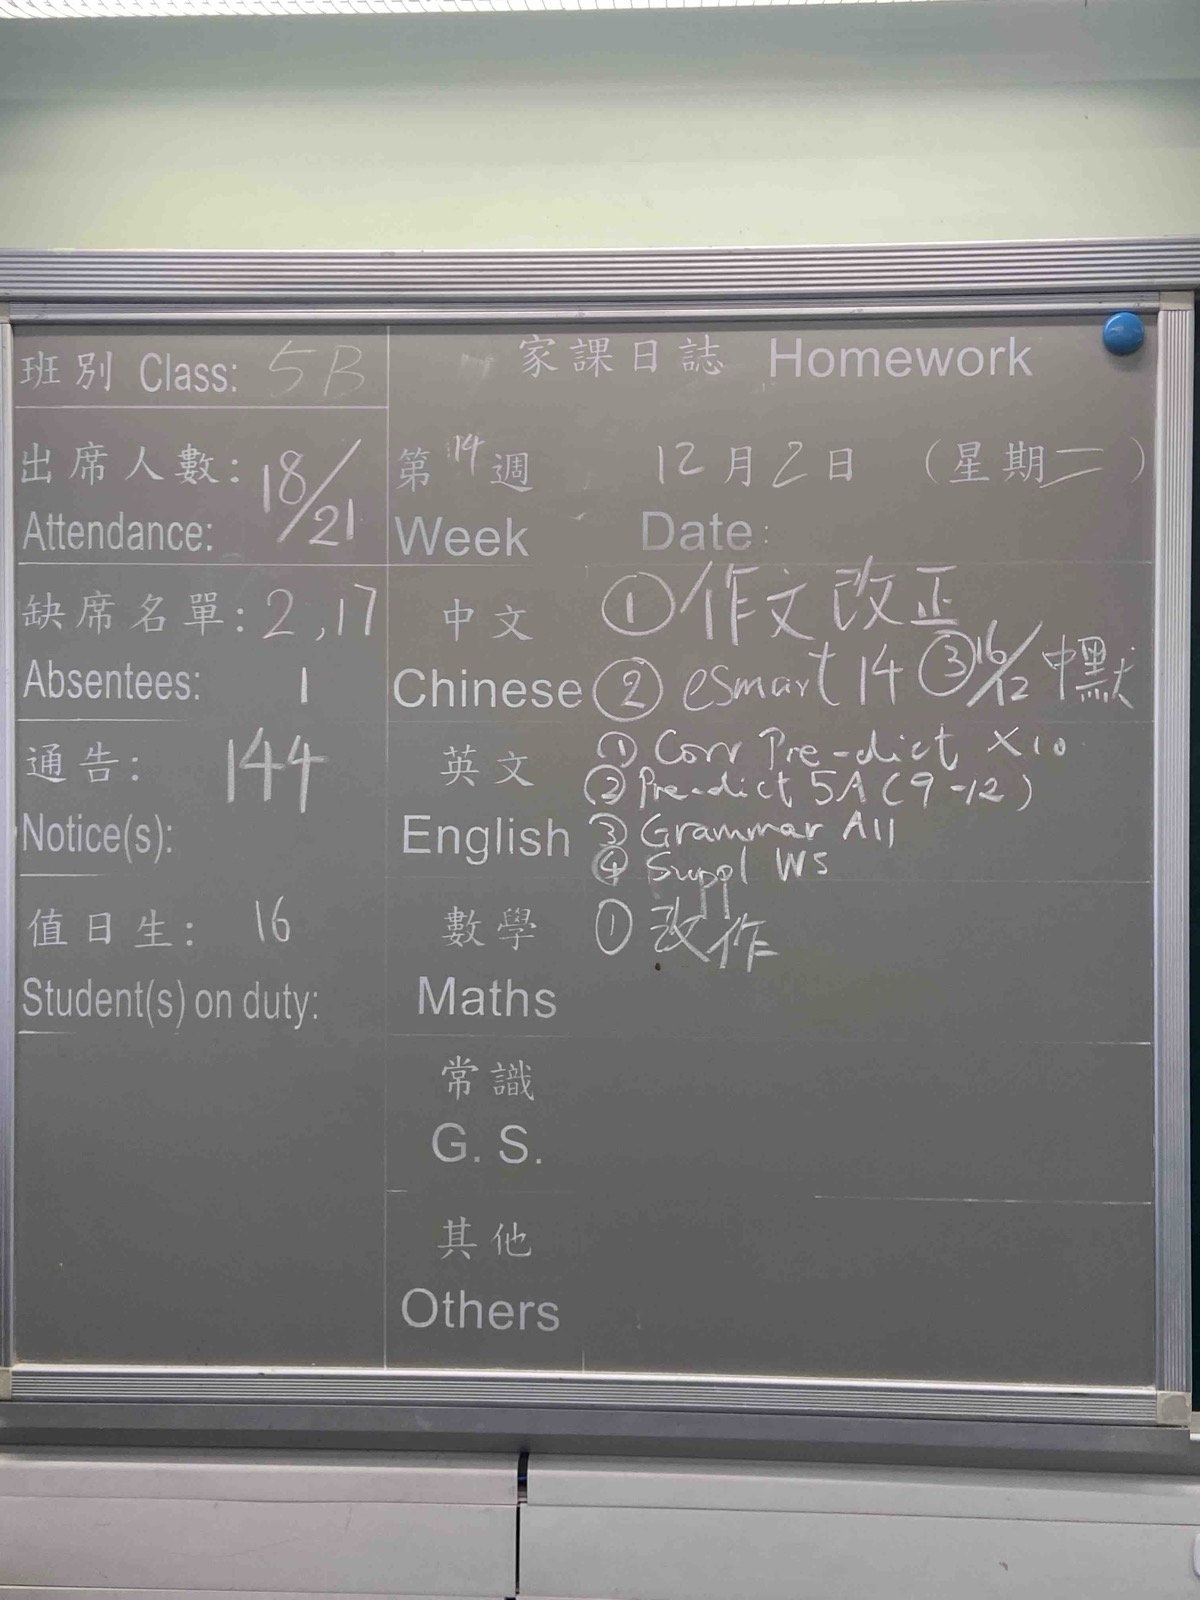 班別 Class: 5B
家課日誌 Homework
出席人數: 18/21
Attendance:
第14週 12月2日 (星期二)
Week Date:
缺席名單: 2,17
Absentees: 1
中文 ①作文改正
Chinese ② eSmart 14 ③16/12 中默
通告: 144
Notice(s):
英文 ① Corr Pre-dict ×10
② Pre-dict 5A (9-12)
English ③ Grammar A11
④ Suppl WS
值日生: 16
Student(s) on duty:
數學 ① 改作
Maths
常識
G. S.
其他
Others